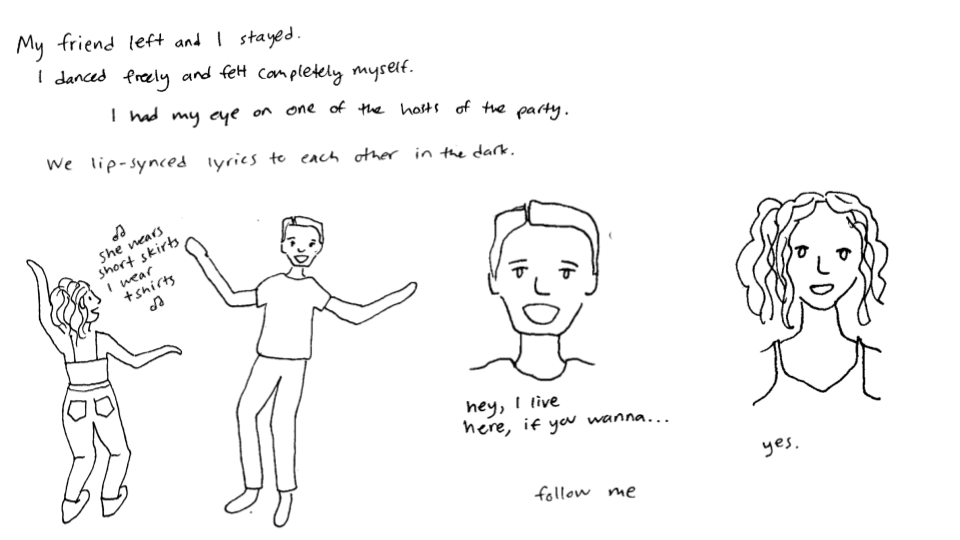 My friend left and I stayed.
I danced freely and felt completely myself.
I had my eye on one of the hosts of the party.
We lip-synced lyrics to each other in the dark.
she wears
short skirts
I wear
tshirts
hey, I live
here, if you wanna...
follow me
yes.